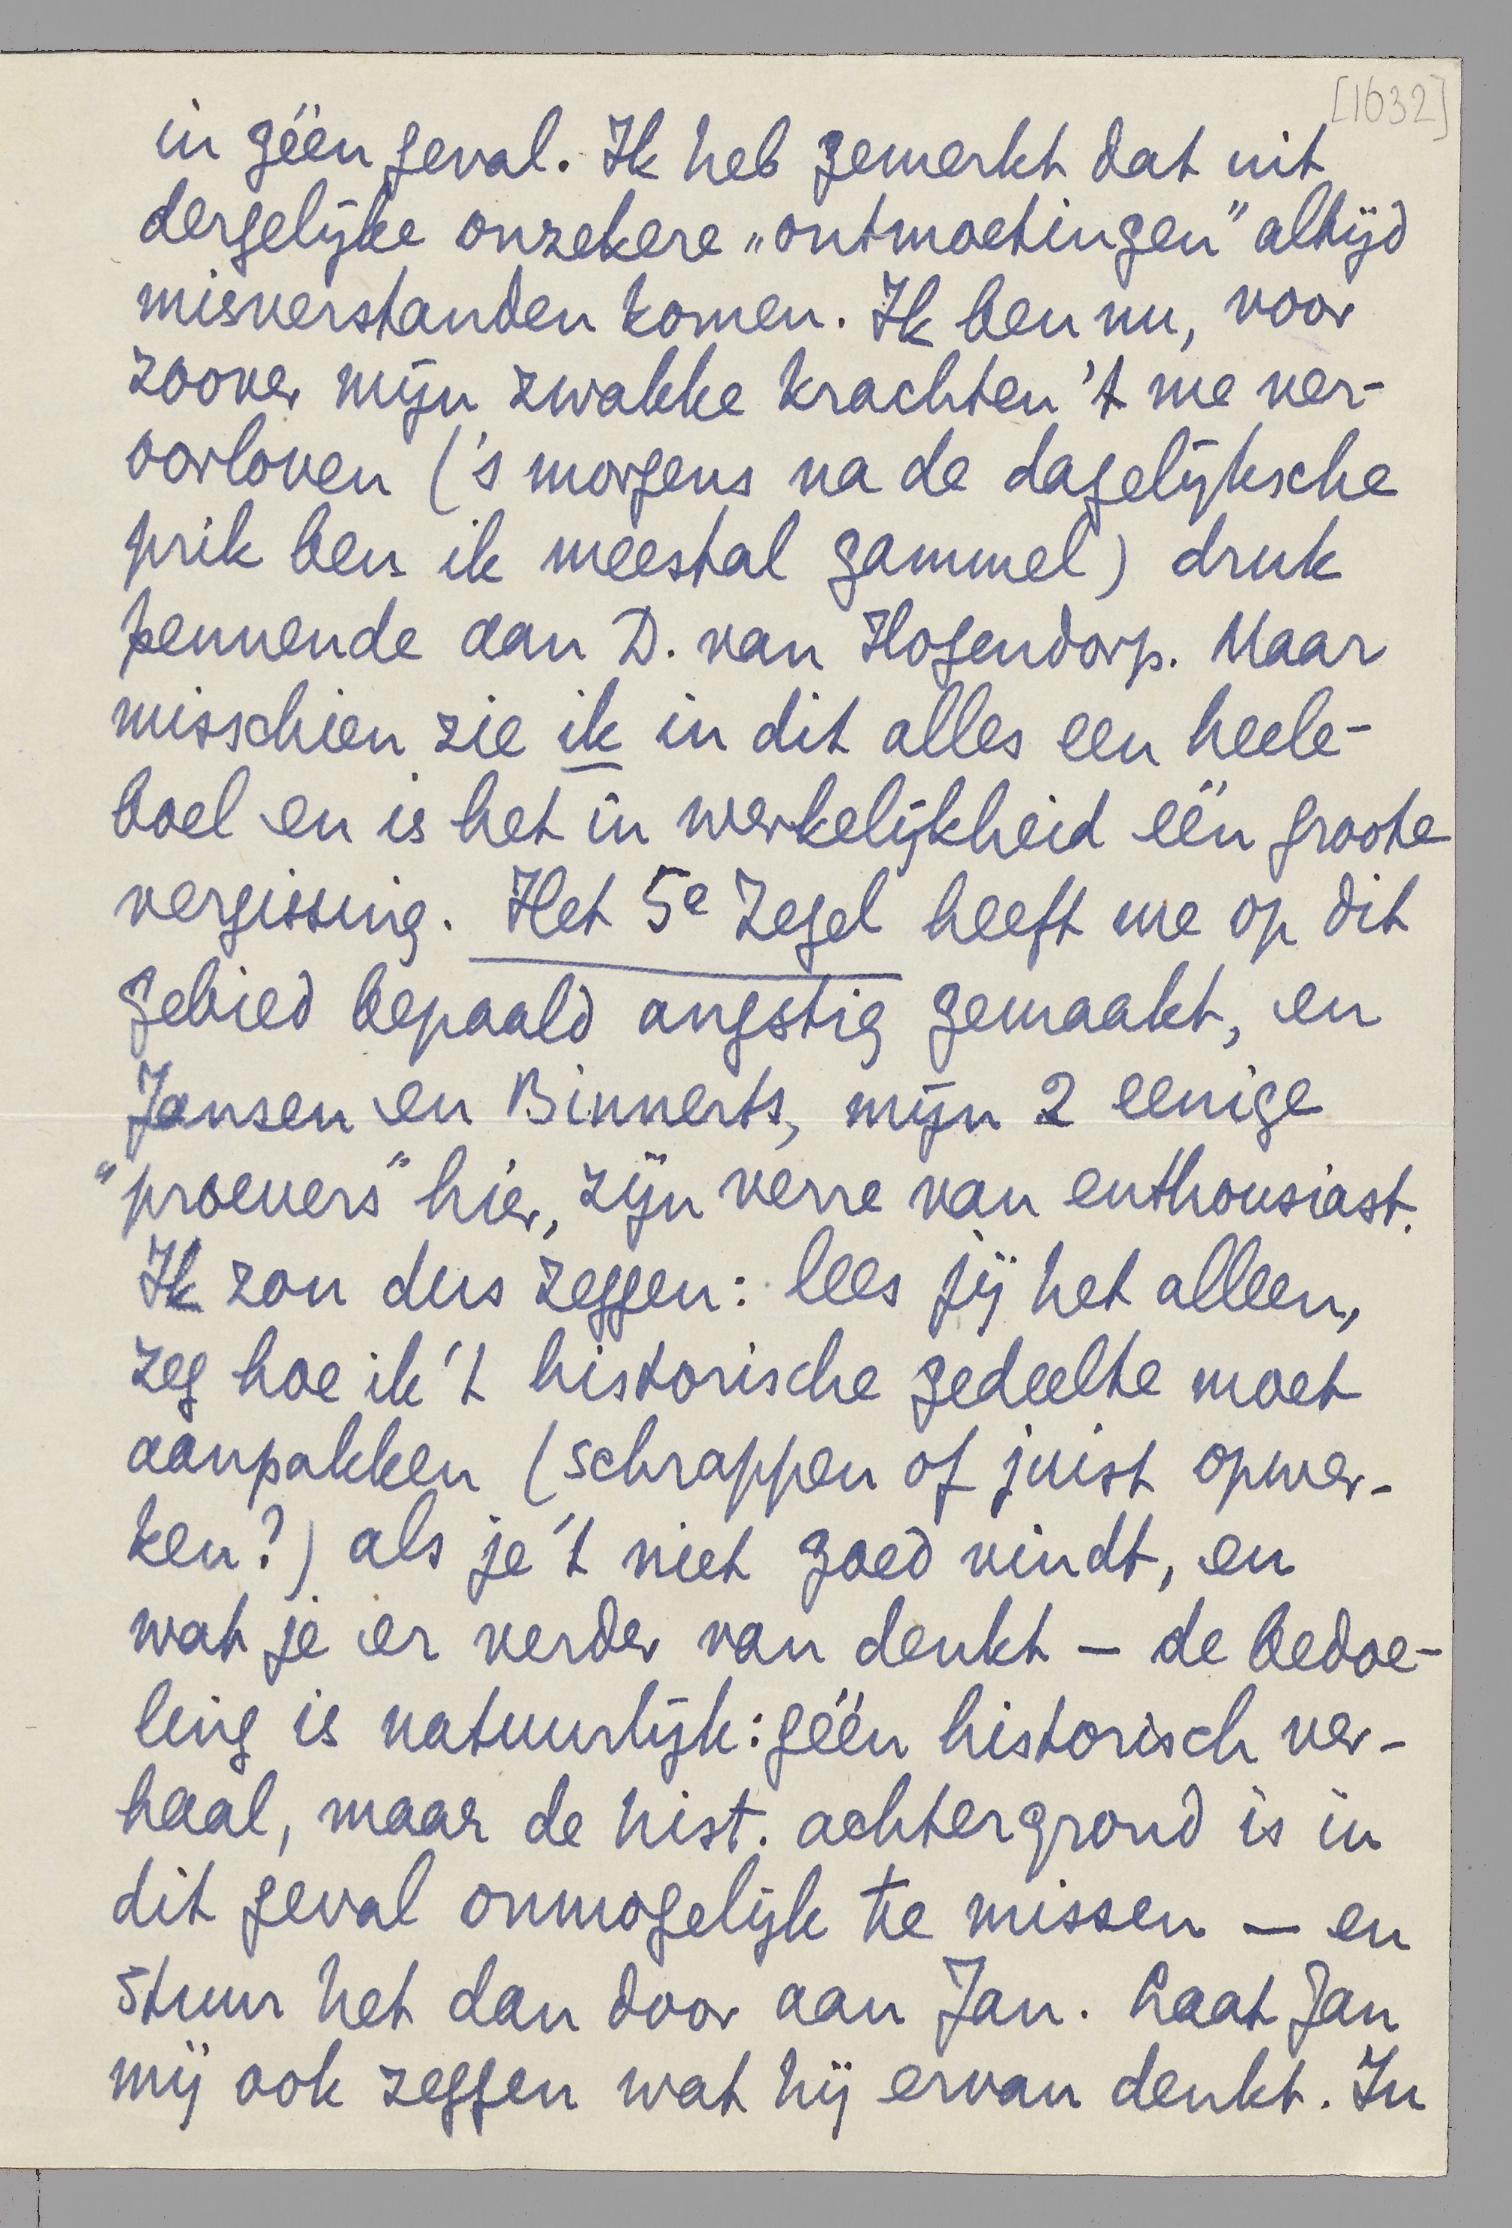 [1632]
in géén geval. Ik heb gemerkt dat uit
dergelijke onzekere „ontmoetingen” altijd
misverstanden komen. Ik ben nu, voor
zoover mijn zwakke krachten 't me ver-
oorloven ('s morgens na de dagelijksche
prik ben ik meestal gammel) druk
pennende aan D. van Hogendorp. Maar
misschien zie ik in dit alles een heele-
boel en is het in werkelijkheid één groote
vergissing. Het 5e Zegel heeft me op dit
gebied bepaald angstig gemaakt, en
Jansen en Binnerts, mijn 2 eenige
“proevers” hier, zijn verre van enthousiast.
Ik zou dus zeggen: lees jij het alleen,
zeg hoe ik 't historische gedeelte moet
aanpakken (schrappen of juist opwer-
ken?) als je 't niet goed vindt, en
wat je er verder van denkt — de bedoe-
ling is natuurlijk: géén historisch ver-
haal, maar de hist. achtergrond is in
dit geval onmogelijk te missen — en
stuur het dan door aan Jan. Laat Jan
mij ook zeggen wat hij ervan denkt. In